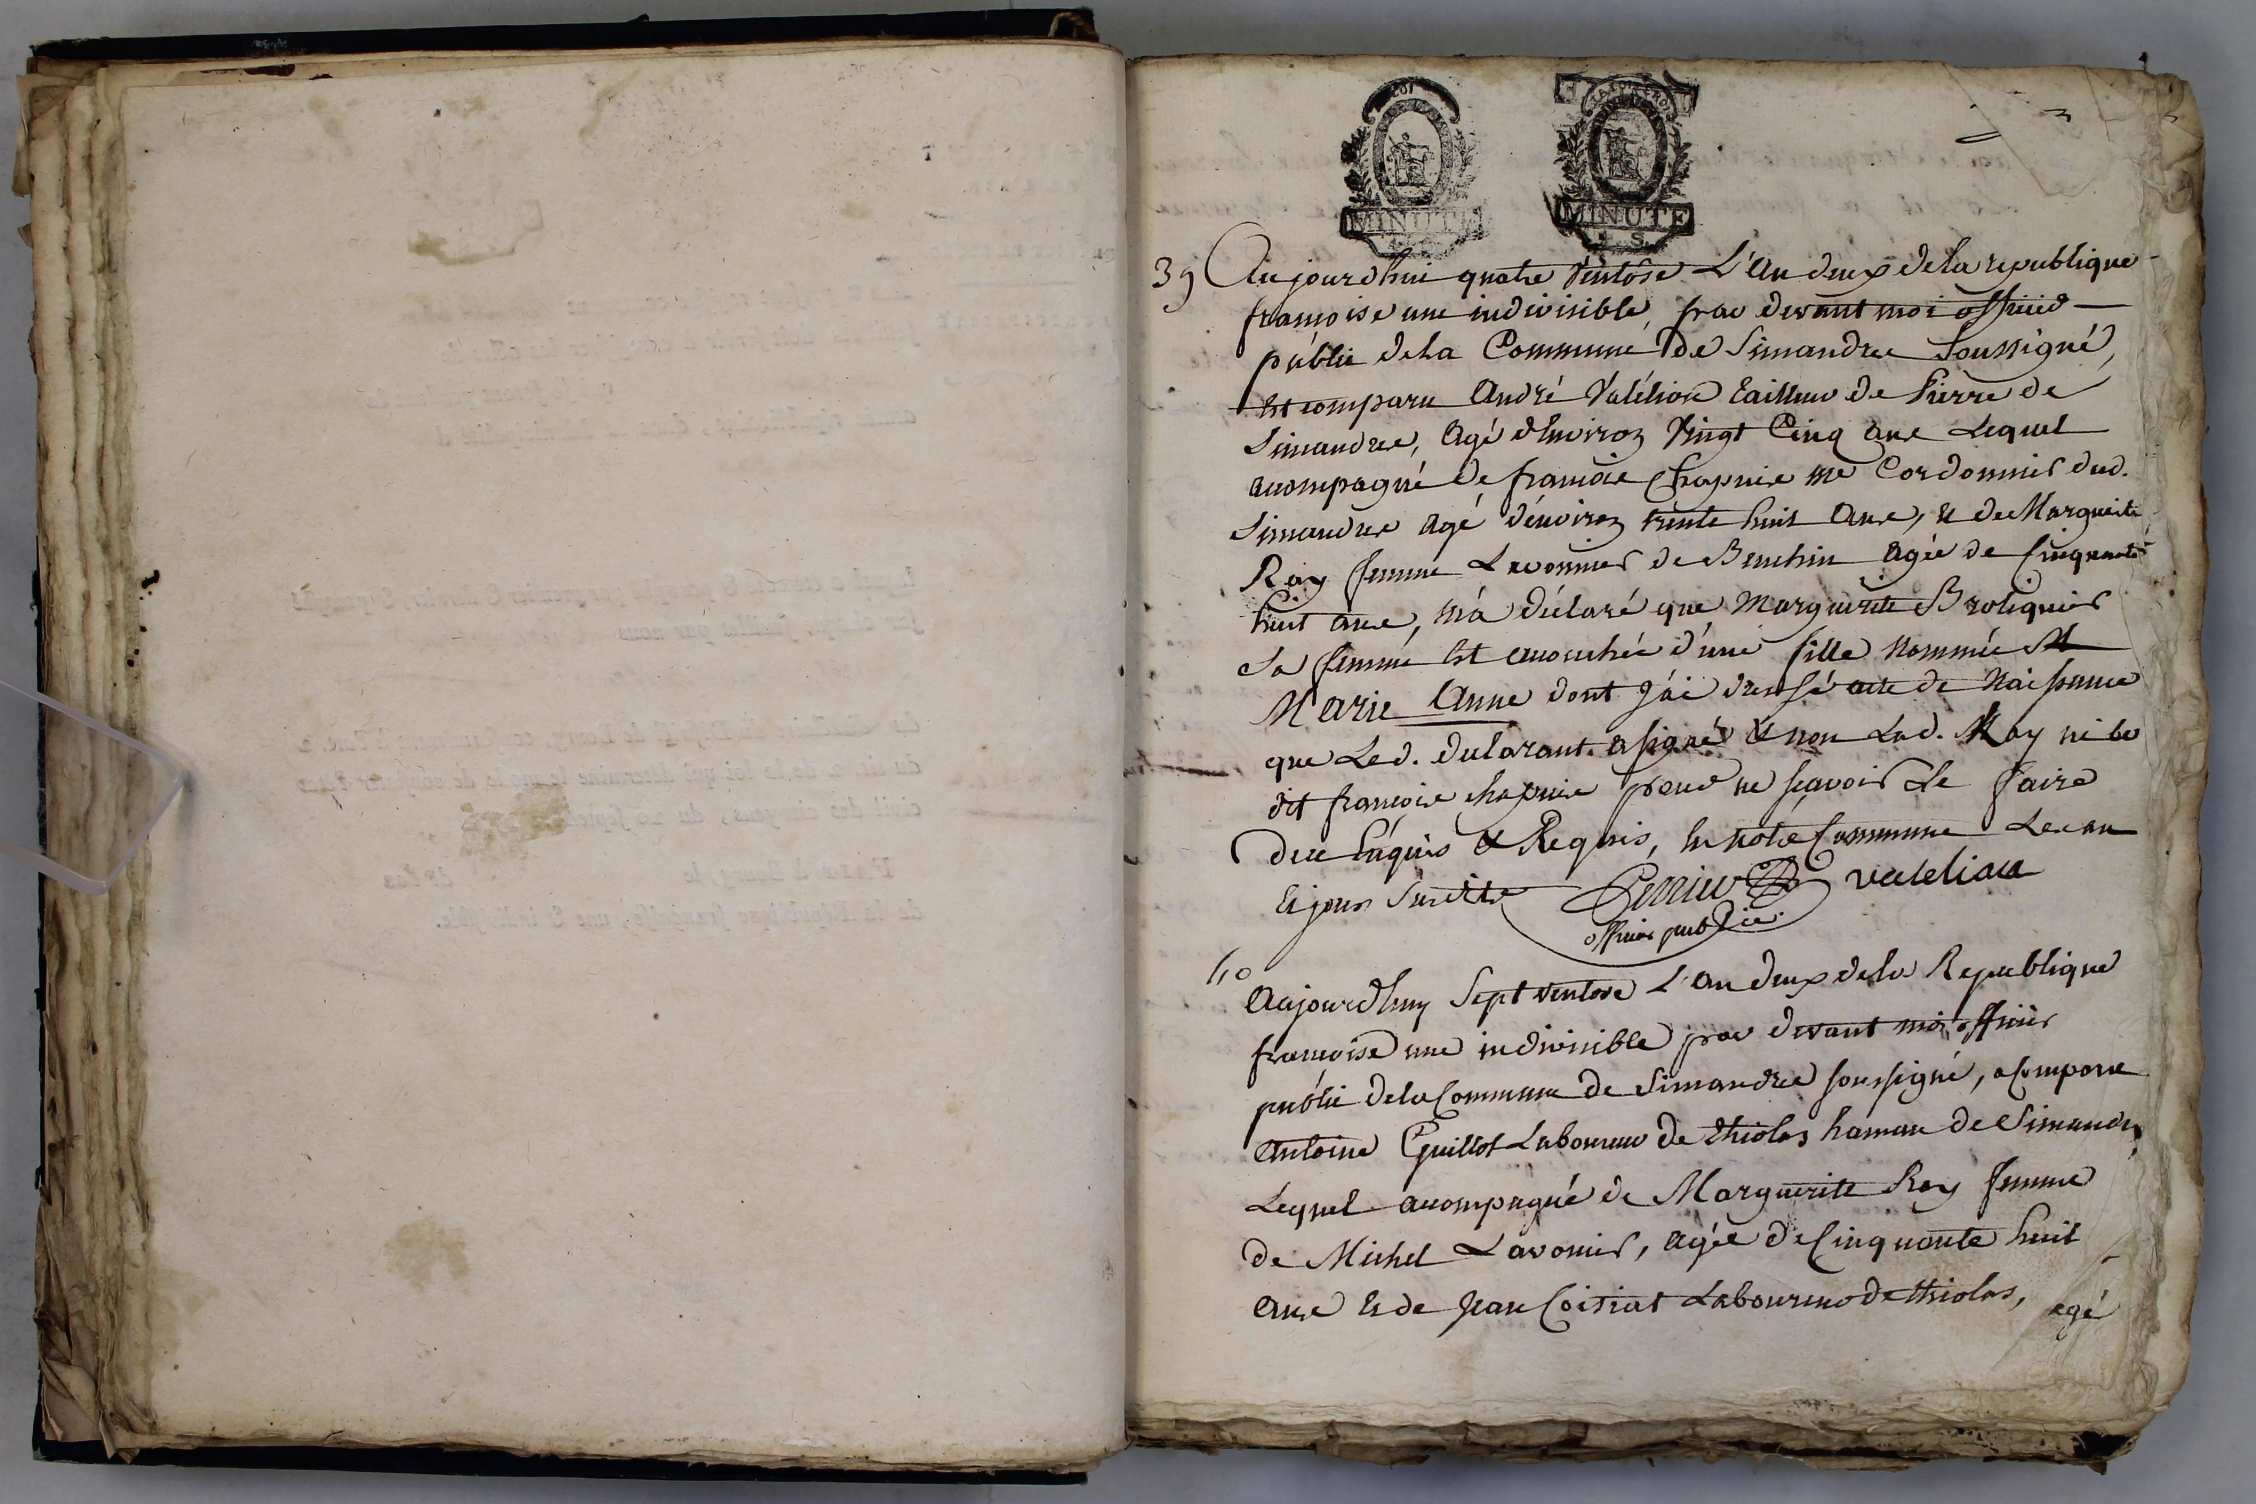 LOI
MINUTE
MINUTE
S
39 Aujourd'hui quatre Ventôse L'An deux de la republique
francoise une indivisible, par devant moi officier
public de la Commune de Simandre Soussigné,
Est comparu André Valélion tailleur de Pierre de
Simandre, agé d'Environ Vingt Cinq ans Lequel
acompagné de francois Chapuis me Cordonnier dud.
Simandre agé d'environ trente huit ans, & de Marguerite
Ray femme Lavonnier de Banchin agée de Cinquante
huit ans, m'a déclaré que Marguerite Broliquier
sa femme Est acouchée d'une fille nommée M
Marie Anne dont J'ai dressé acte de Naissance
que Led. declarant a signé & non Lad. Ray ni le
dit francois chapuis pour ne sçavoir Le faire
de ce Enquis & Requis, En notre Commune Les an
Et jour Susdits Perrier Valelion
officier public.
40
Aujourd'huy Sept ventose L'an deux de la Republique
françoise une indivisible par devant moi officier
public de la Commune de Simandre soussigné, a Comparu
Antoine Guillot Laboureur de thiolas hamau de Simandre,
Lequel acompagné de Marguerite Ray femme
de Michel Lavonier, agée de Cinquante huit
ans Et de Jean Coitiat Laboureur de thiolas, agé